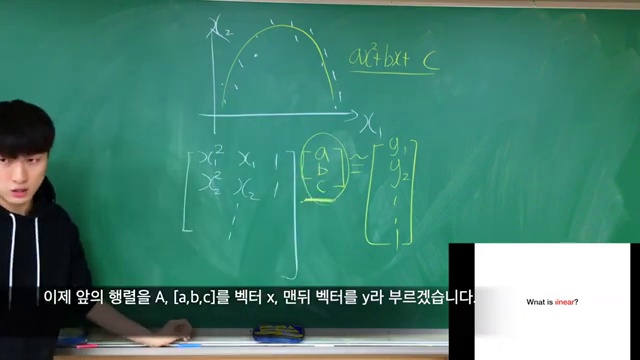 x₂
ax²+bx+ c
x₁
x₁² x₁ 1 a ≅ y₁
x₂² x₂ 1 b y₂
c
이제 앞의 행렬을 A, [a,b,c]를 벡터 x, 맨뒤 벡터를 y라 부르겠습니다.
What is linear?